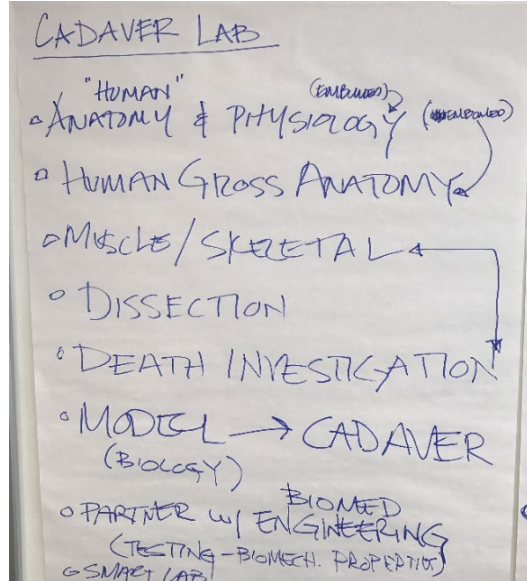 CADAVER LAB
"HUMAN" (EMBALMED)
ANATOMY & PHYSIOLOGY
HUMAN GROSS ANATOMY
MUSCLE/SKELETAL
DISSECTION
DEATH INVESTIGATION
MODEL → CADAVER
(BIOLOGY)
BIOMED
PARTNER w/ ENGINEERING
(TESTING - BIOMECH. PROPERTIES)
SMART LAB